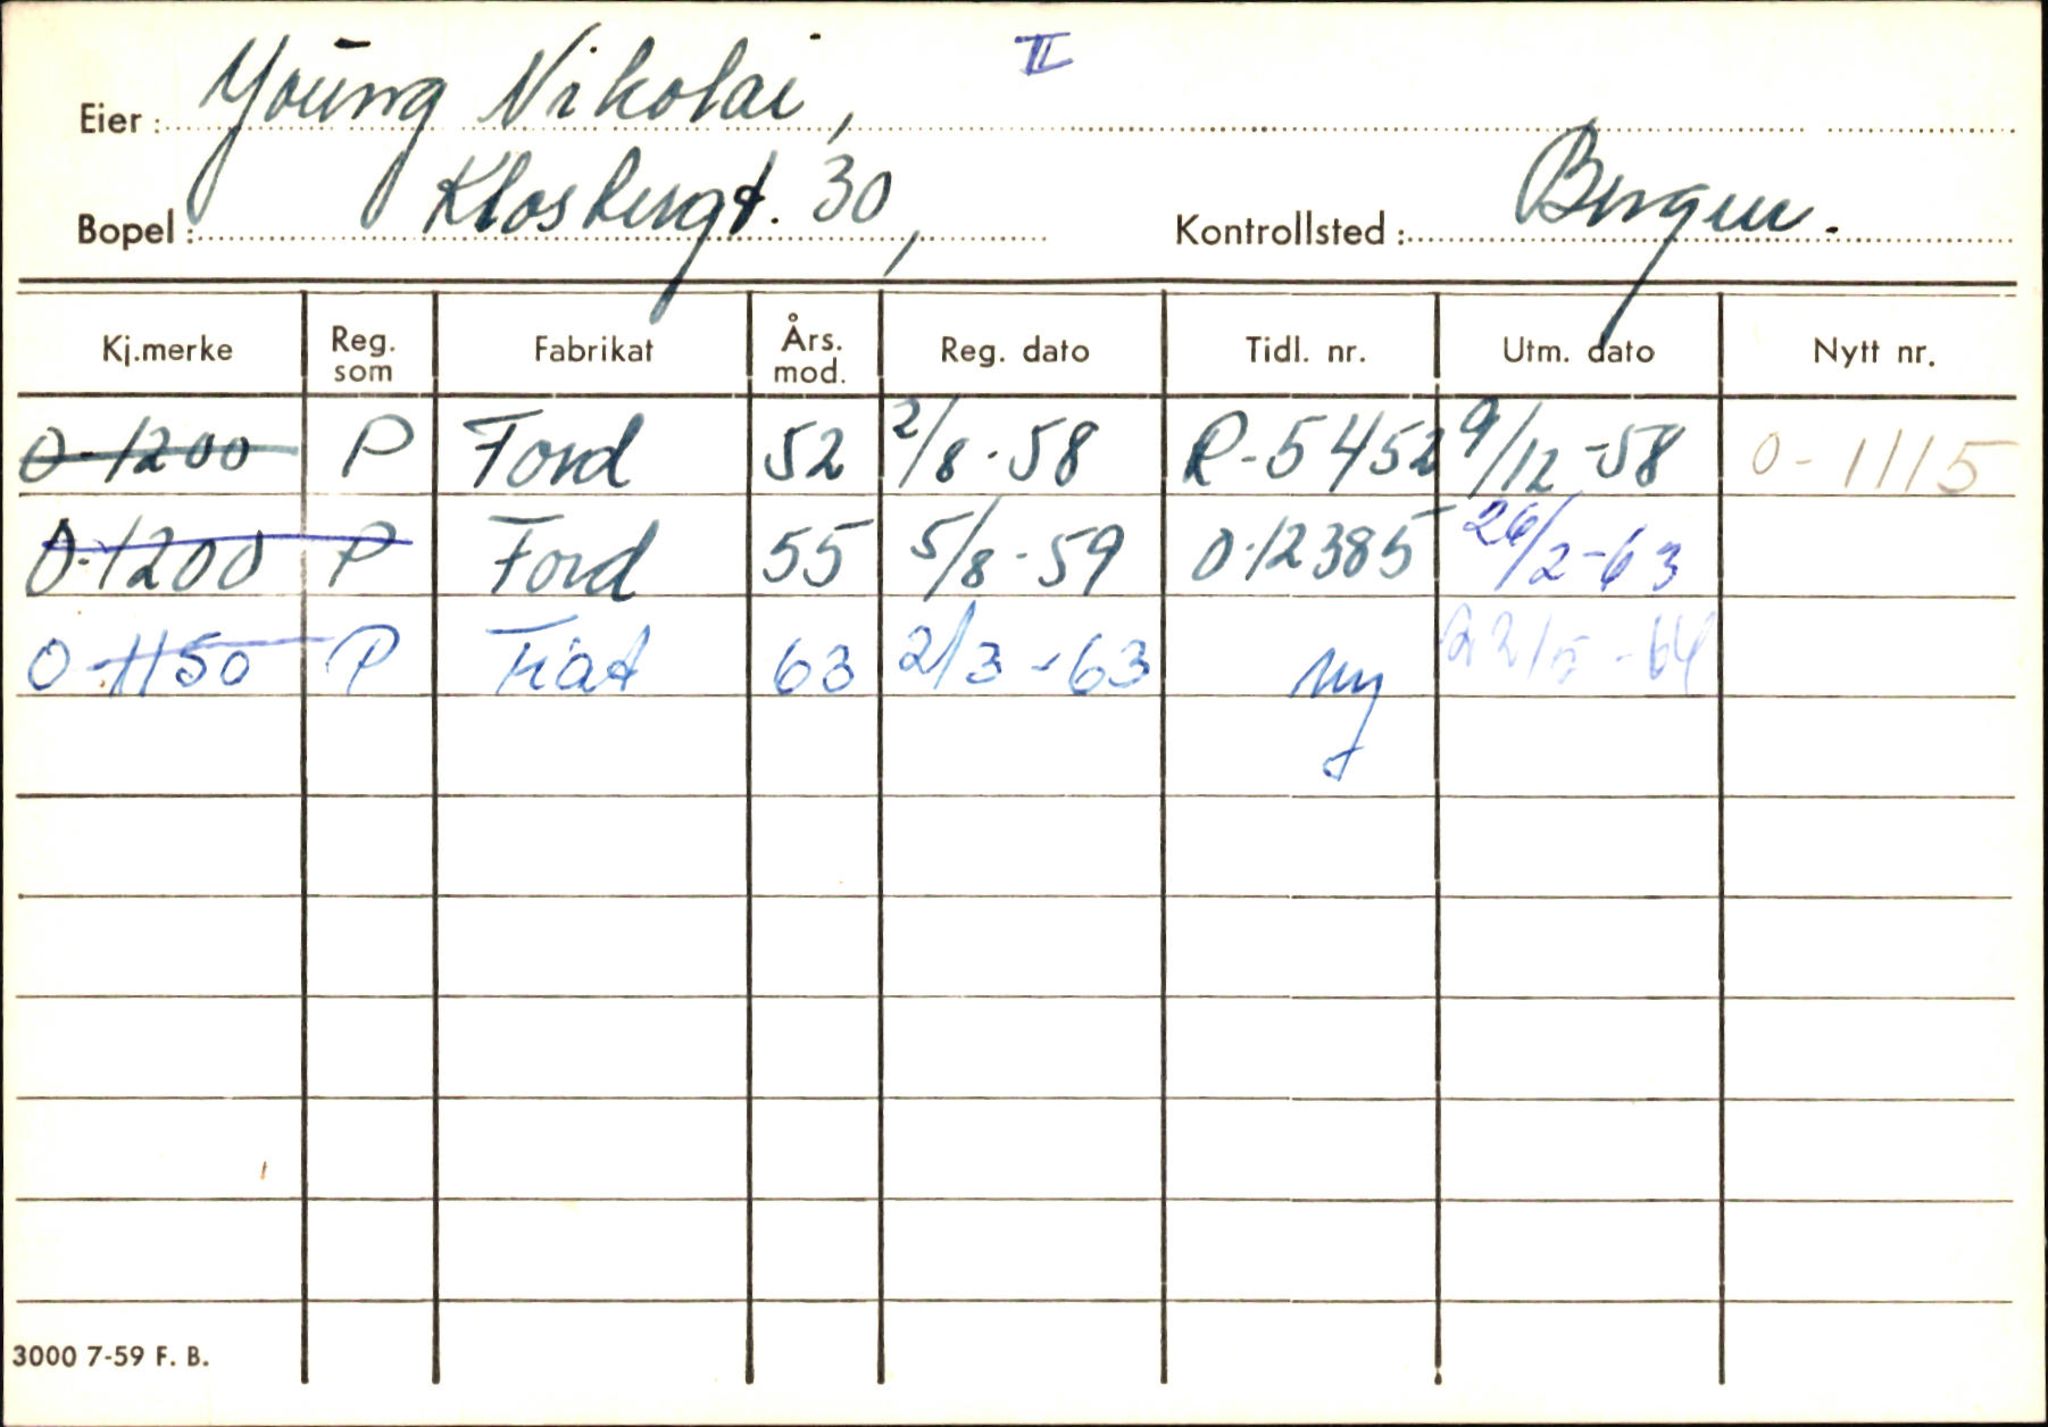 Eier: Young Nikolai, II
Bopel: Klosbergt. 30, Kontrollsted: Bergen.
Kj.merke Reg. som Fabrikat Års. mod. Reg. dato Tidl. nr. Utm. dato Nytt nr.
O-1200 P Ford 52 2/8-58 R-5452 9/12-58 O-1115
O-1200 P Ford 55 5/8-59 O-12385 26/2-63
O-1150 P Fiat 63 2/3-63 Ny 22/5-64
3000 7-59 F. B.